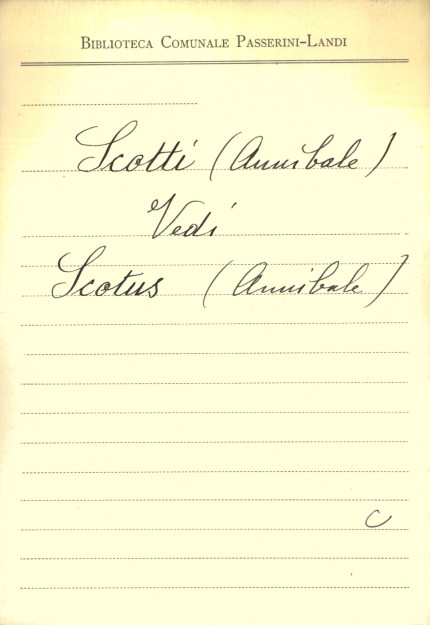 Biblioteca Comunale Passerini-Landi
Scotti (Annibale)
Vedi
Scotus (Annibale)
C